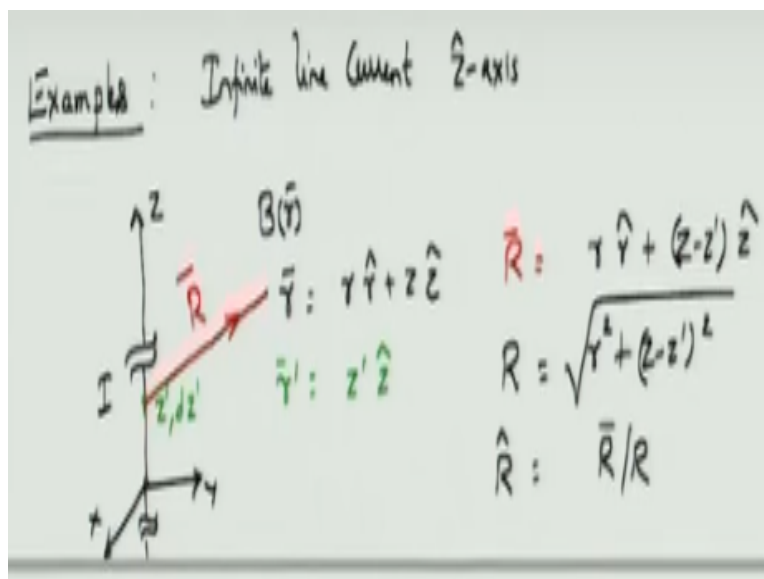 Examples : Infinite line Current ẑ-axis
z
B(r̄)
R̄
r̄ : r r̂ + z ẑ
R̄ : r r̂ + (z-z') ẑ
I
z', dz'
r̄' : z' ẑ
R = √r² + (z-z')²
R̂ : R̄/R
x
y